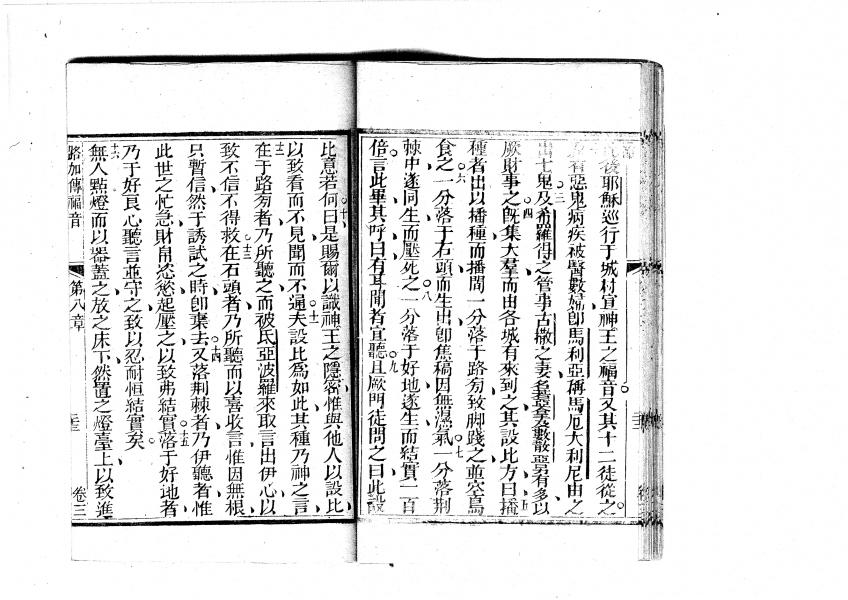 後耶穌巡行于城村宣神王之福音又其十二徒從之
有惡鬼病疾被醫數婦卽馬利亞稱馬厄大利尼由之
出七鬼三及希羅得之管事古撒之妻數另有多以
厥財事之四旣集大羣而由各城有來到之其設比方曰五播
種者出以播種而播間一分落于路旁致脚踐之並空鳥
食之六一分落于石頭而生出卽焦稿因無濕氣七一分落荆
棘中遂同生而壓死之八一分落于好地遂生而結實一百
倍言此畢其呼曰有耳聞者宜聽九且厥門徒問之曰此設
比意若何十曰是賜爾以識神王之隱密惟與他人以設比
以致看而不見聞而不通十一夫設比爲如此其種乃神之言
十二在于路旁者乃所聽之而被氐亞波羅來取言出伊心以
致不信不得救十三在石頭者乃所聽而以喜收言惟因無根
只暫信然于誘試之時卽棄去十四又落荆棘者乃伊聽者惟
此世之忙急財帛恣慾起壓之以致弗結實十五落于好地者
乃于好良心聽言並守之致以忍耐恒結實矣
十六無人點燈而以器蓋之放之床下然置之燈臺上以致進
路加傳福音 第八章 卷三